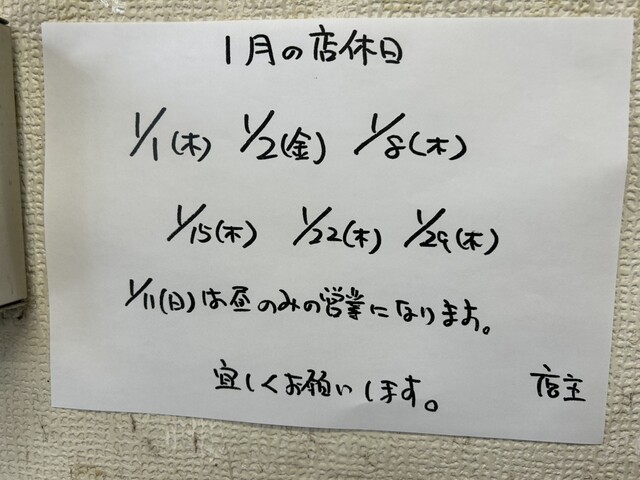 1月の店休日
1/1(木) 1/2(金) 1/8(木)
1/15(木) 1/22(木) 1/29(木)
1/11(日)は昼のみの営業になります。
宜しくお願いします。 店主